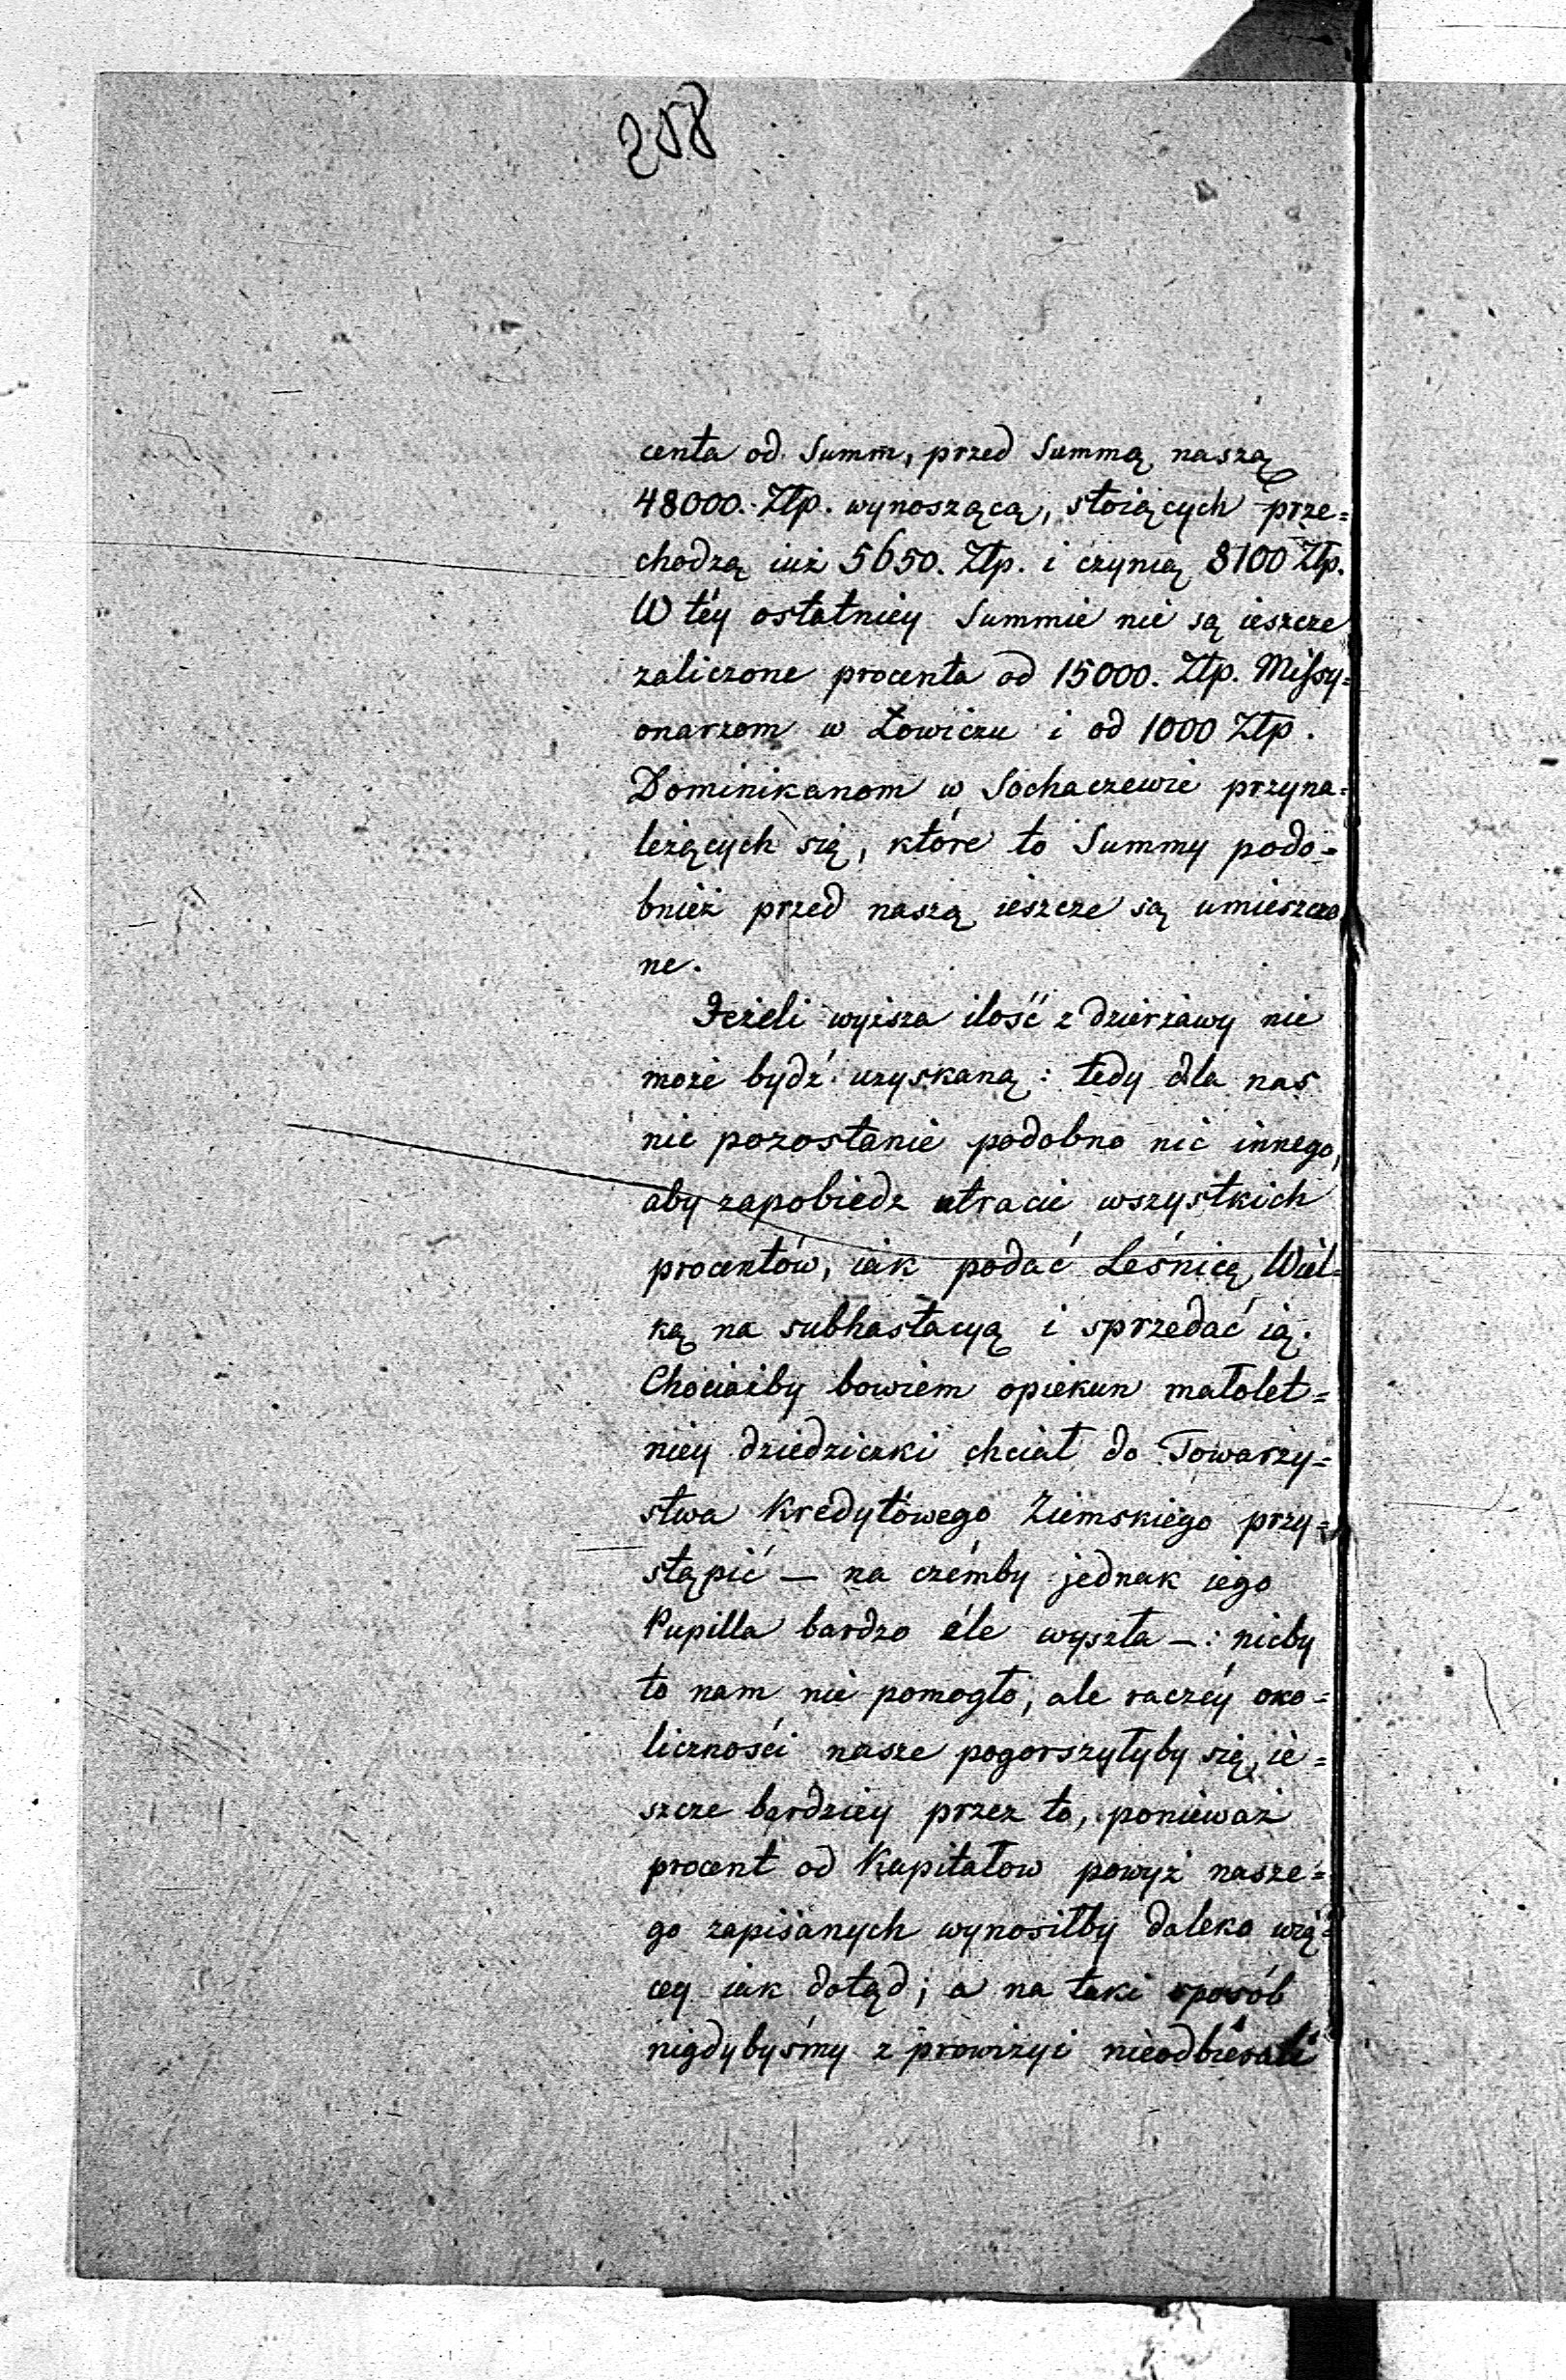 208
centa od Summ, przed Summą naszą
48000. Złp. wynoszącą, stoiących prze=
chodzą iuż 5650. Złp. i czynią 8100 Złp.
W téy ostatniey Summie nie są ieszcze
zaliczone procenta od 15000. Złp. Missy=
onarzom w Łowiczu i od 1000 Złp.
Dominikanom w Sochaczewie przyna=
leżących się, które to Summy podo=
bnież przed naszą ieszcze są umieszczo
ne.
Jeżeli wyższa ilość z dzierżawy nie
może bydź uzyskaną: tedy dla nas
nie pozostanie podobno nic innego,
aby zapobiedz utracie wszystkich
procentów, iak podać Leśnicę Wiel=
ką na subhastacyą i sprzedać ią.
Chociażby bowiem opiekun małolet=
niey dziedziczki chciał do Towarzy=
stwa Kredytowego Ziemskiego przy=
stąpić — na czémby jednak iego
Pupilla bardzo źle wyszła —: nicby
to nam nie pomogło, ale raczéy oko=
liczności nasze pogorszyłyby się ie=
szcze bardziey przez to, ponieważ
procent od Kapitałow powyż nasze=
go zapisanych wynosiłby daleko wię=
cey iak dotąd; a na taki sposób
nigdybyśmy z prowizyi nieodbierali